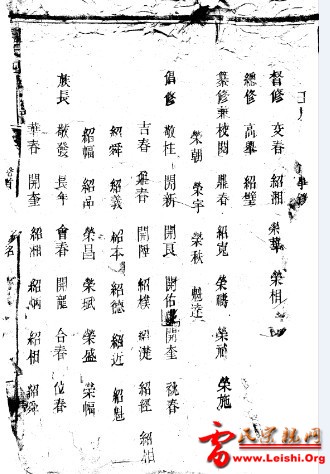 督修 交春 紹湘 榮華 榮相
總修 高舉 紹璧
纂修兼校閱 鼎春 紹嵬 榮禱 榮禎 榮施
榮朝 榮宇 榮秋 魁達
倡修 敬性 開新 開良 開佑 開奎 競春
吉春 集春 開陞 紹樸 紹濋 紹經 紹祖
紹舜 紹義 紹本 紹德 紹近 紹魁
紹幅 紹品 榮昌 榮斌 榮盛 榮幅
族長 敬發 長年 會春 開龍 合春 位春
華春 開奎 紹湘 紹炳 紹相 紹舜
雷氏宗族网
www.Leishi.Org